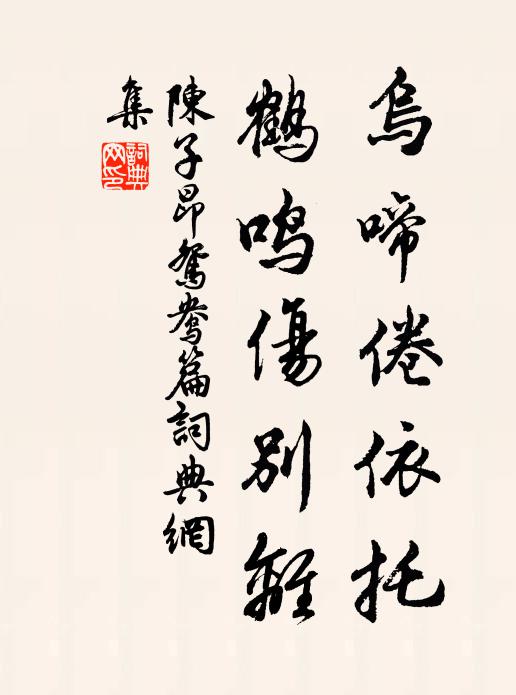 烏啼倦依托
鶴鳴傷別離
陳子昂鴛鴦篇詞典網
集
詞典網印